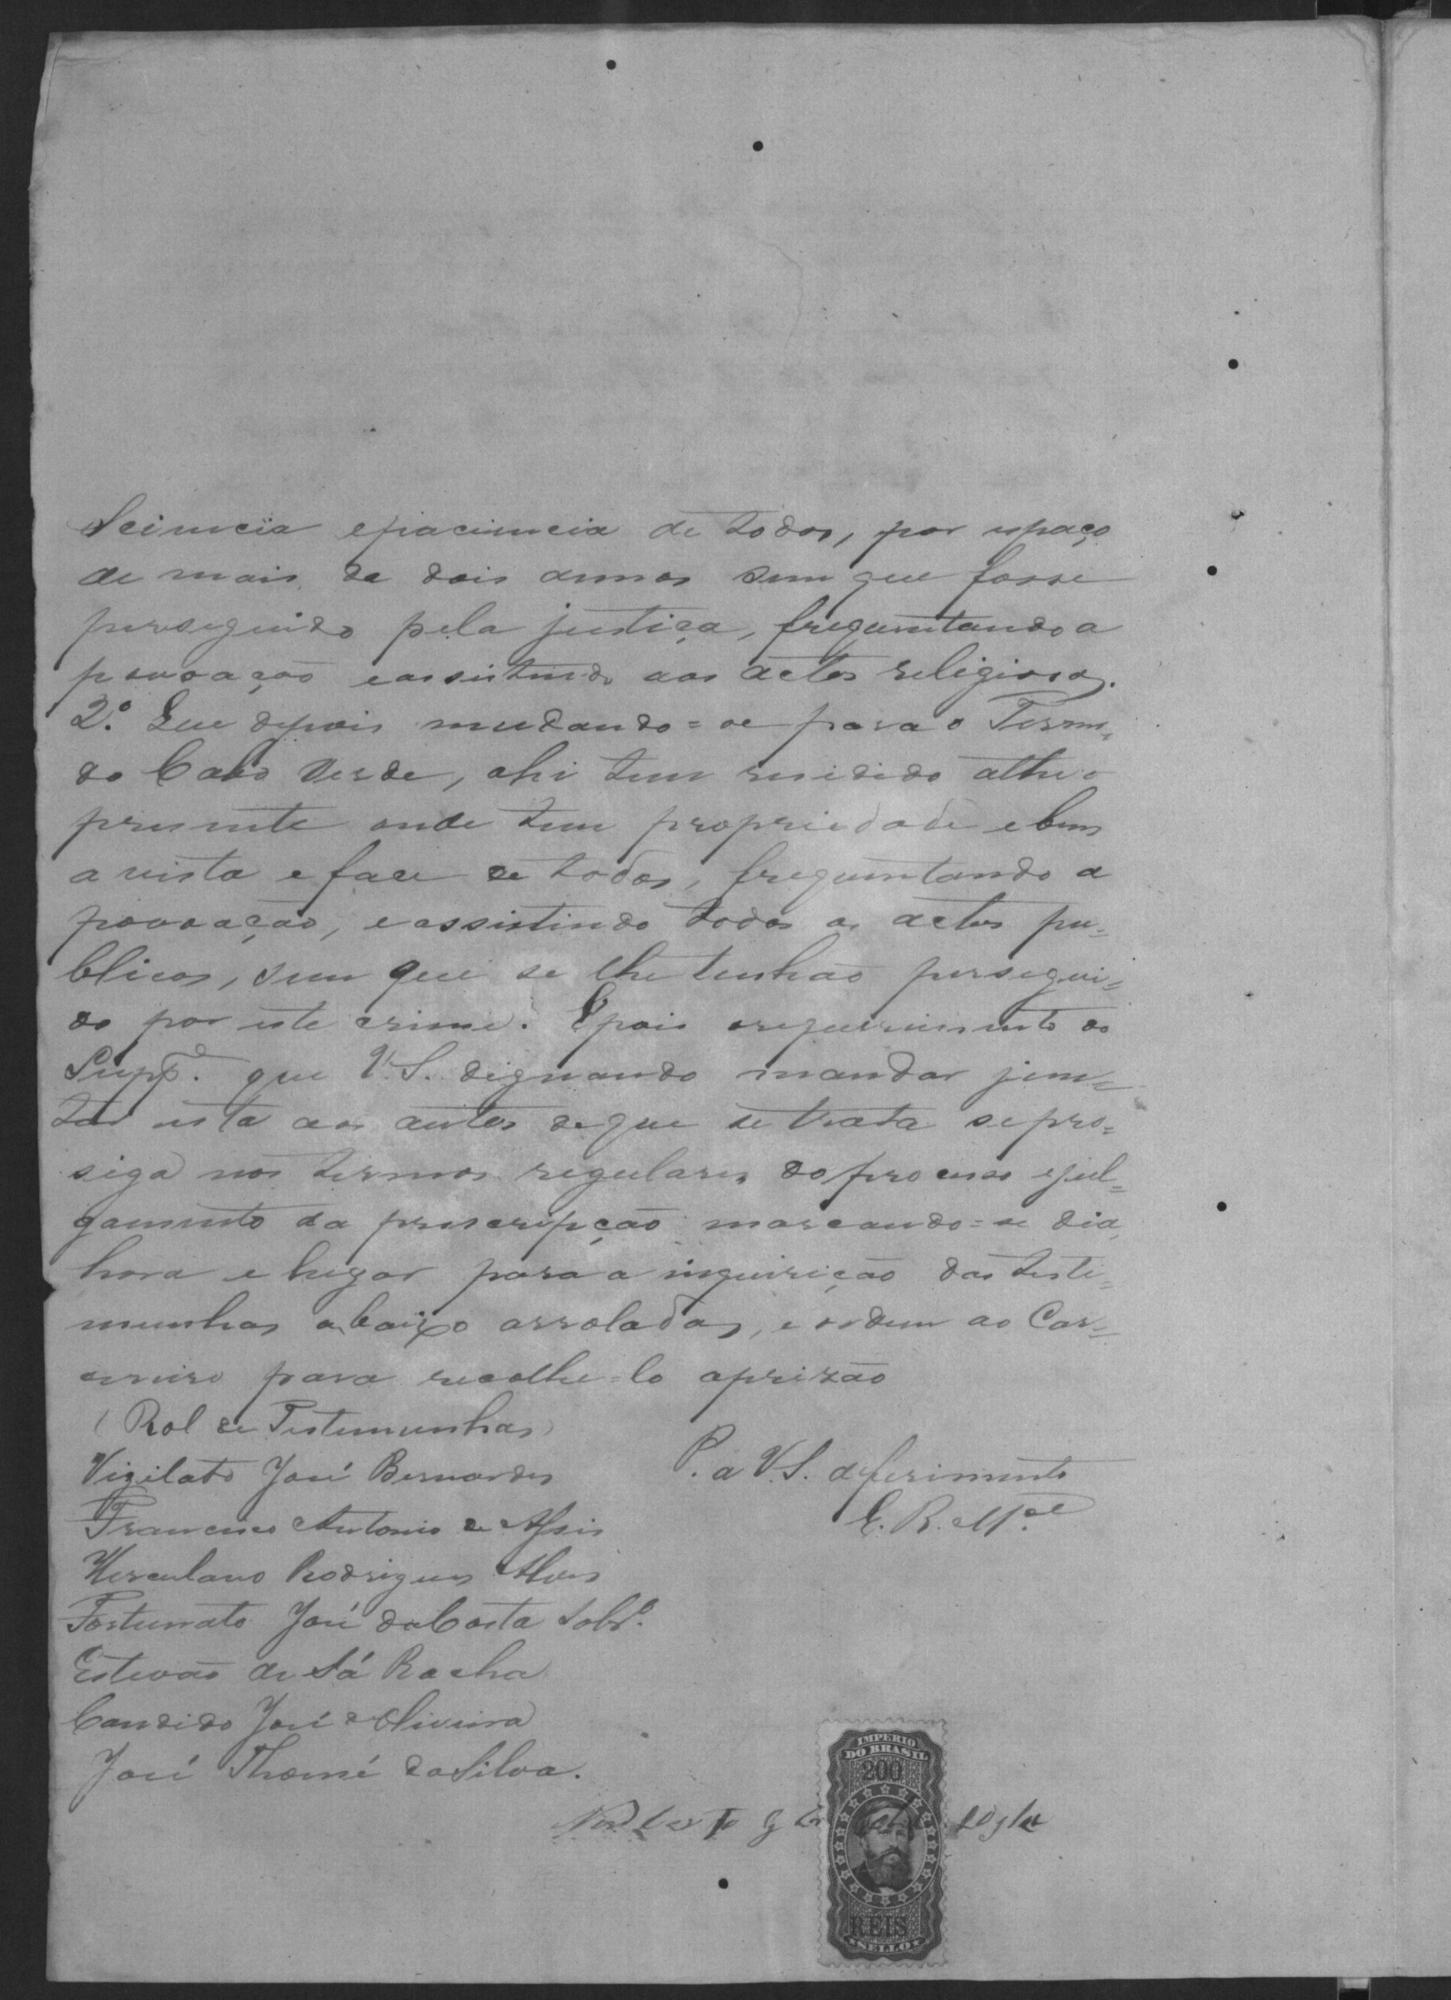 Sciencia epaciencia de todos, por espaço
de mais de dois annos sem que fosse
perseguido pela justiça, frequentando a
povoação eassistindo aos actos religiosos.
2.º Que depois mudando=se para o Termo
do Cabo Verde, ahi tem residido athe o
presente onde tem propriedade ebens
a vista e face de todos, frequentando a
povoação, e assistindo todos os actos pu=
blicos, sem que se lhe tenhão persegui=
do por este crime. E pois orequerimento do
Supp.do que V.S. dignando mandar jun=
tar esta aos autos de que se trata se pro=
siga nos termos regulares do processo ejul=
gamento da prescripção marcando=se dia,
hora e lugar para a inquirição das teste=
munhas abaixo arroladas, e ordem ao Car=
cereiro para recolhe-lo aprizão
(Rol de Testemunhas)
P. a V.S. deferimento
E. R. M.ce
Vigilato José Bernardes
Francisco Antonio de Assis
Herculano Rodrigues Alves
Fortunato José da Costa Sobr.º
Estevão de Sá Rocha
Candido José de Oliveira
José Thomé da Silva.
IMPERIO
DO BRASIL
200
Norberto
REIS
SELLO